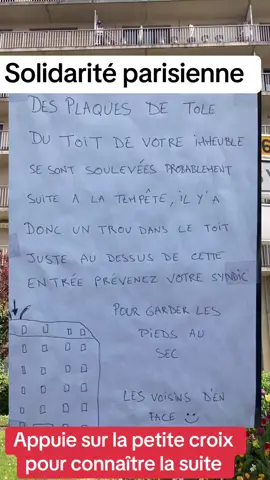 Solidarité parisienne
DES PLAQUES DE TOLE
DU TOIT DE VOTRE IMMEUBLE
SE SONT SOULEVÉES PROBABLEMENT
SUITE A LA TEMPÊTE, IL Y'A
DONC UN TROU DANS LE TOIT
JUSTE AU DESSUS DE CETTE
ENTRÉE PRÉVENEZ VOTRE SYNDIC
POUR GARDER LES
PIEDS AU
SEC
LES VOISINS D'EN
FACE
Appuie sur la petite croix
pour connaître la suite